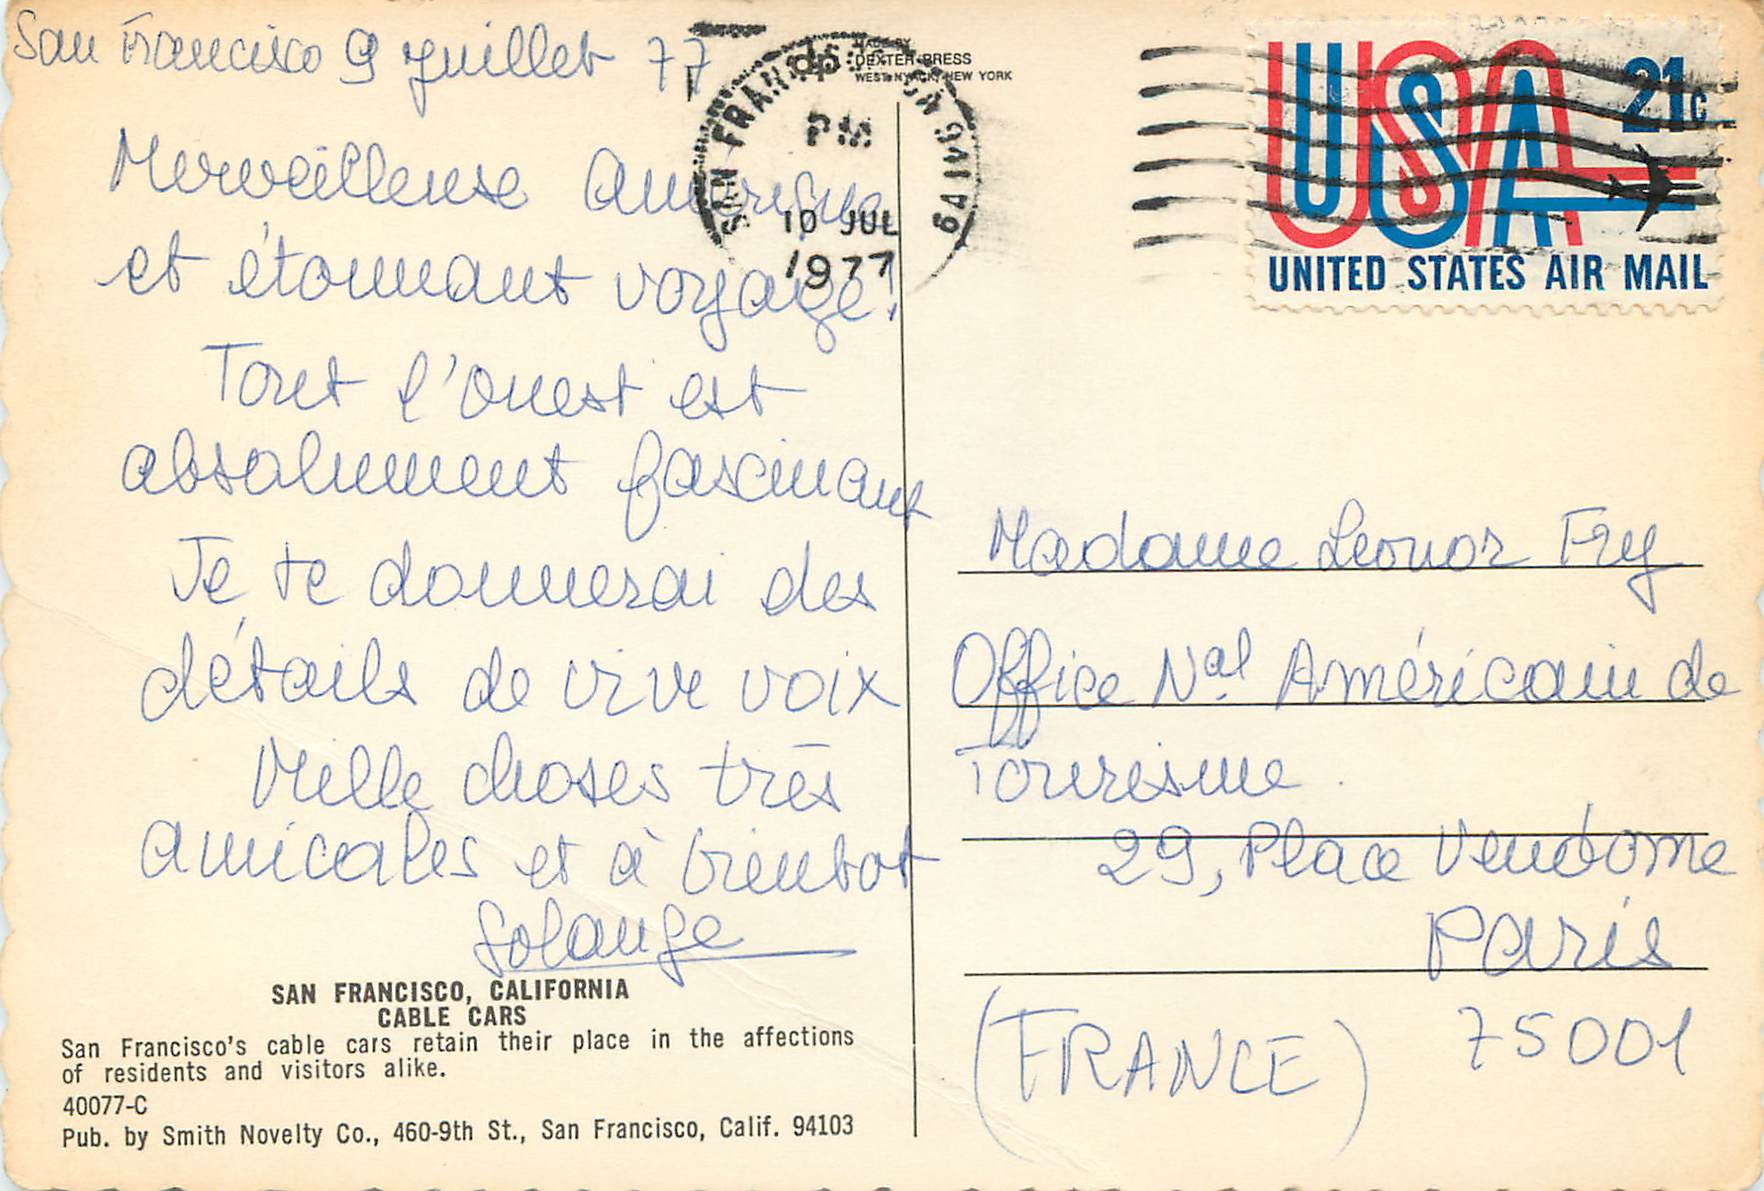 San Francisco 9 Juillet 77
Merveilleuse Amérique
et étonnant voyage!
Tout l'Ouest est
absolument fascinant
Je te donnerai des
détails de vive voix
Mille choses très
amicales et à bientot
Solange
SAN FRANCISCO, CALIFORNIA
CABLE CARS
San Francisco's cable cars retain their place in the affections
of residents and visitors alike.
40077-C
Pub. by Smith Novelty Co., 460-9th St., San Francisco, Calif. 94103
MADE BY
DEXTER PRESS
WEST NYACK, NEW YORK
SAN FRANCISCO CA 941
PM
10 JUL
1977
USA 21c
UNITED STATES AIR MAIL
Madame Leonor Fry
Office Nal Américain de
Tourisme.
29, Place Vendôme
Paris
75001
(FRANCE)